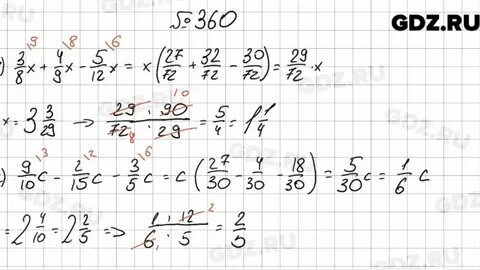 №360
GDZ.RU
) 3/8 x + 4/9 x - 5/12 x = x (27/72 + 32/72 - 30/72) = 29/72 · x
x = 3 3/29 → 29 · 90 / 72 · 29 = 5/4 = 1 1/4
) 9/10 c - 2/15 c - 3/5 c = c (27/30 - 4/30 - 18/30) = 5/30 c = 1/6 c
= 2 4/10 = 2 2/5 => 1 · 12 / 6 · 5 = 2/5